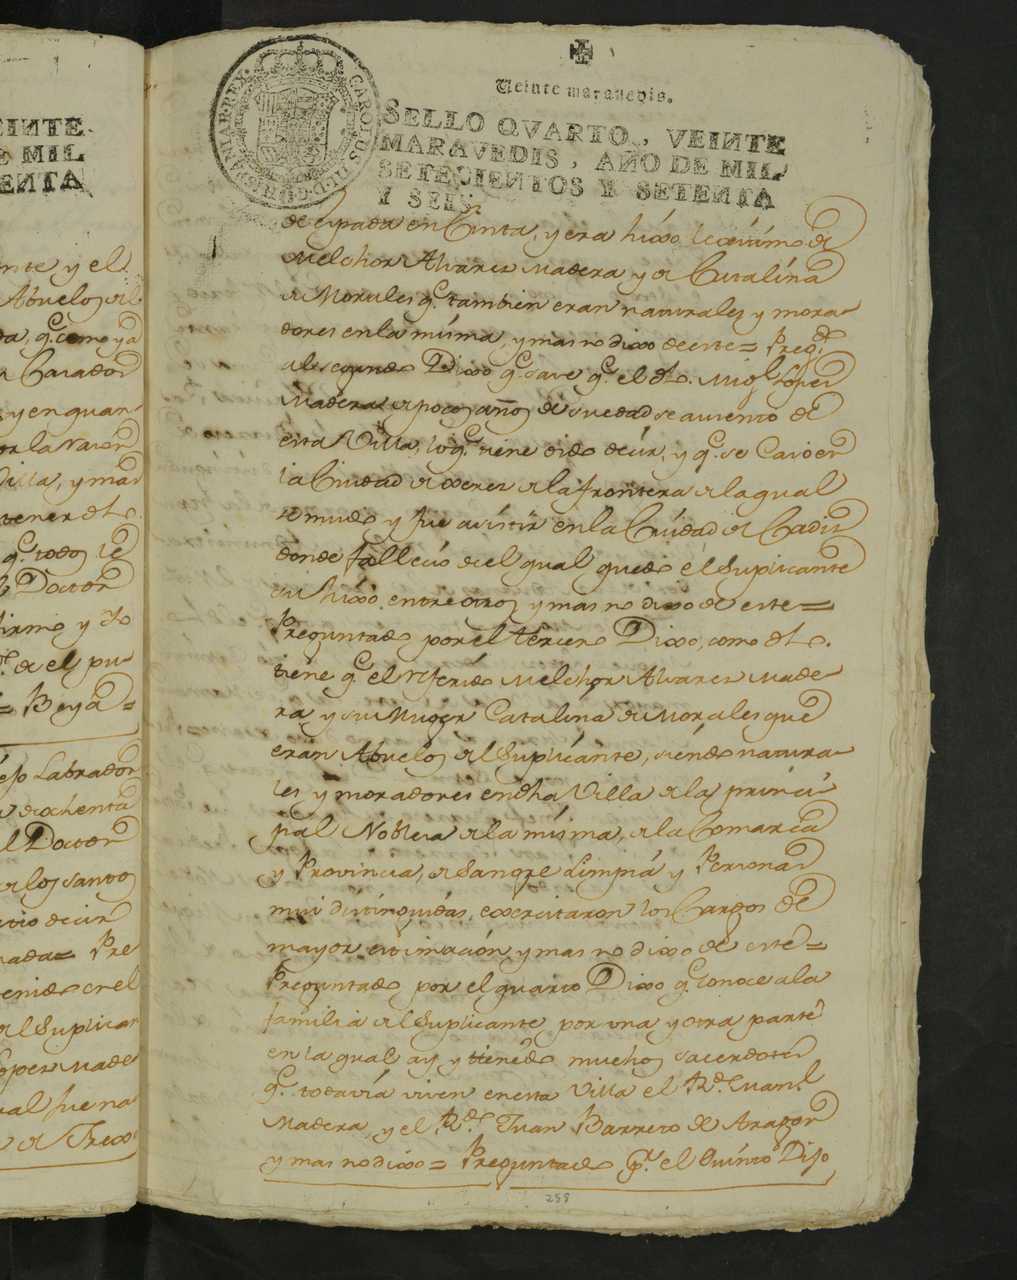 Veinte maravedis.
SELLO QVARTO, VEINTE
MARAVEDIS, AÑO DE MIL
SETECIENTOS Y SETENTA
Y SEIS.
CAROLUS III D G HISPANIAR REX
de espada en Cinta, y era hixo lexitimo de
Melchor Alvarez Madera y de Catalina
de Morales q.e tambien eran naturales y mora-
dores en la misma, y mas no dixo de este= Preg.do
al segundo Dixo q.e save q.e el dho. Mig.l Lopez
Madera de pocos años de su edad se ausento de
esta Villa, lo q.e tiene oido decir, y q.e se Caso en
la Ciudad de Xerez de la frontera de la qual
se mudo y fue a vistir en la Ciudad de Cadiz
donde fallecio de el qual quedo el Suplicante
su hixo entre otros y mas no dixo de este=
Preguntado por el tercero Dixo, como dho.
tiene q.e el referido Melchor Alvarez Made-
ra, y su Muger Catalina de Morales que
eran Abuelos del Suplicante, siendo natura-
les y moradores en dha Villa de la princi-
pal Nobleza de la misma, de la Comarca
y Provincia, de Sangre Limpia y Personas
mui distinguidas, exercitaron los Cargos de
mayor estimación, y mas no dixo de este=
Preguntado por el quarto Dixo q.e Conoce a la
familia del Suplicante por una y otra parte
en la qual ay, y tienedo muchos sacerdotes
q.e todavia viven en esta Villa el R.do
Madera, y el R.do Juan Barrero de Aragon
y mas no dixo= Preguntado p.r el Quinto Dijo
259
EINTE
E MIL
ENTA
nte y el
Abuelos del
da, q.e como ya
Casador
y en guar-
Villa, y mas
tener dho.
q.e todos le
Doctor
firmo y Yo
de el pu-
= Beya=
Labrador
de ochenta
l Doctor
de los santos
decir
= Pre
en el
del Suplican
Lopez Made
ual fue na
de Frex